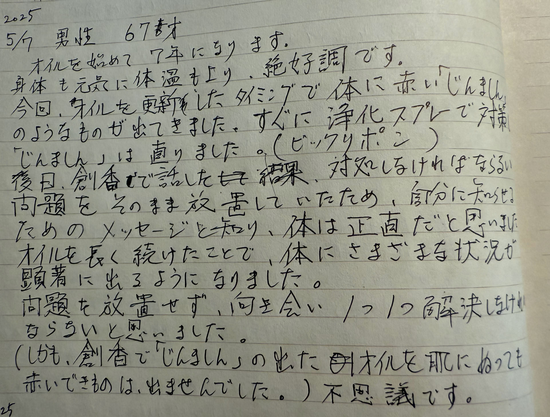 2025
5/7 男性 67才
オイルを始めて 7年になります。
身体も元気に体温も上り、絶好調です。
今回、オイルを更新したタイミングで体に赤い「じんましん」
のようなものが出てきました。すぐに浄化スプレーで対策
「じんましん」は直りました。(ビックリポン)
後日、創香で話した結果、対処しなければならない
問題をそのまま放置していたため、自分に知らせる
ためのメッセージと知り、体は正直だと思いました
オイルを長く続けたことで、体にさまざまな状況が
顕著に出るようになりました。
問題を放置せず、向き会い 1つ1つ解決しなければ
ならないと思いました。
(しかも、創香で「じんましん」の出たオイルを肌にぬっても
赤いできものは、出ませんでした。) 不思議です。
25